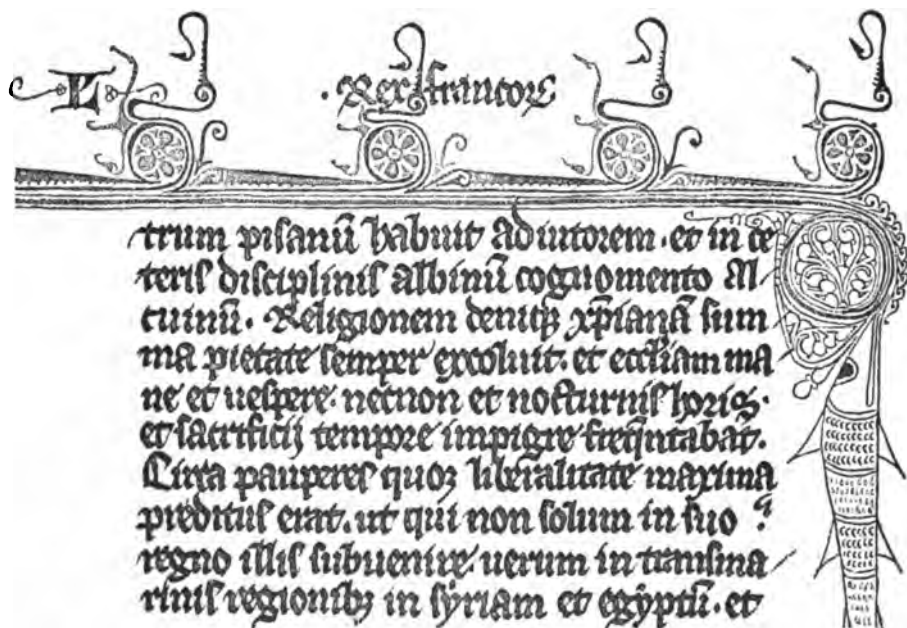 L
. Rex francoꝝ
trum pisanū habuit adiutorem. et in ce
teris disciplinis albinū cognomento Al
cuinū. Religionem deniqꝫ xp̄ianā sum
ma pietate semper excoluit. et eccl̄iam ma
ne et uespere. necnon et nocturnis horis.
et sacrificij tempore impigre freq̄ntabat̄.
Circa pauperes quoꝫ liberalitate maxima
preditus erat. ut qui non solum in suo
regno illis subuenire. uerum in transma
rinis regionibꝫ in syriam et egyptū. et